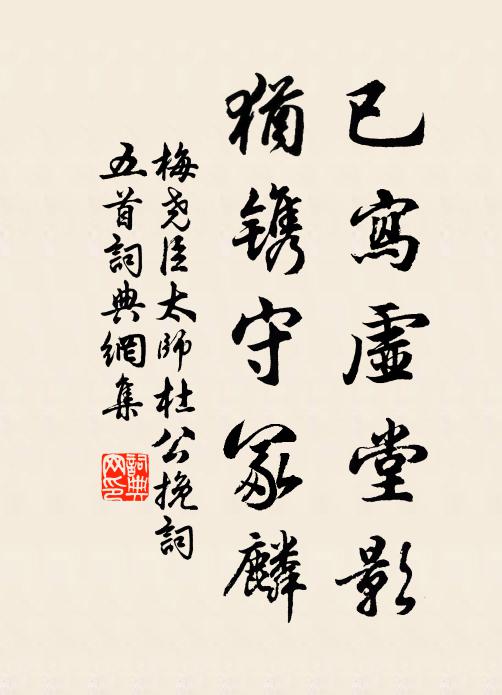 已寫虛堂影
猶鐫守冢麟
梅尧臣太師杜公挽詞
五首詞典網集
詞典
网印